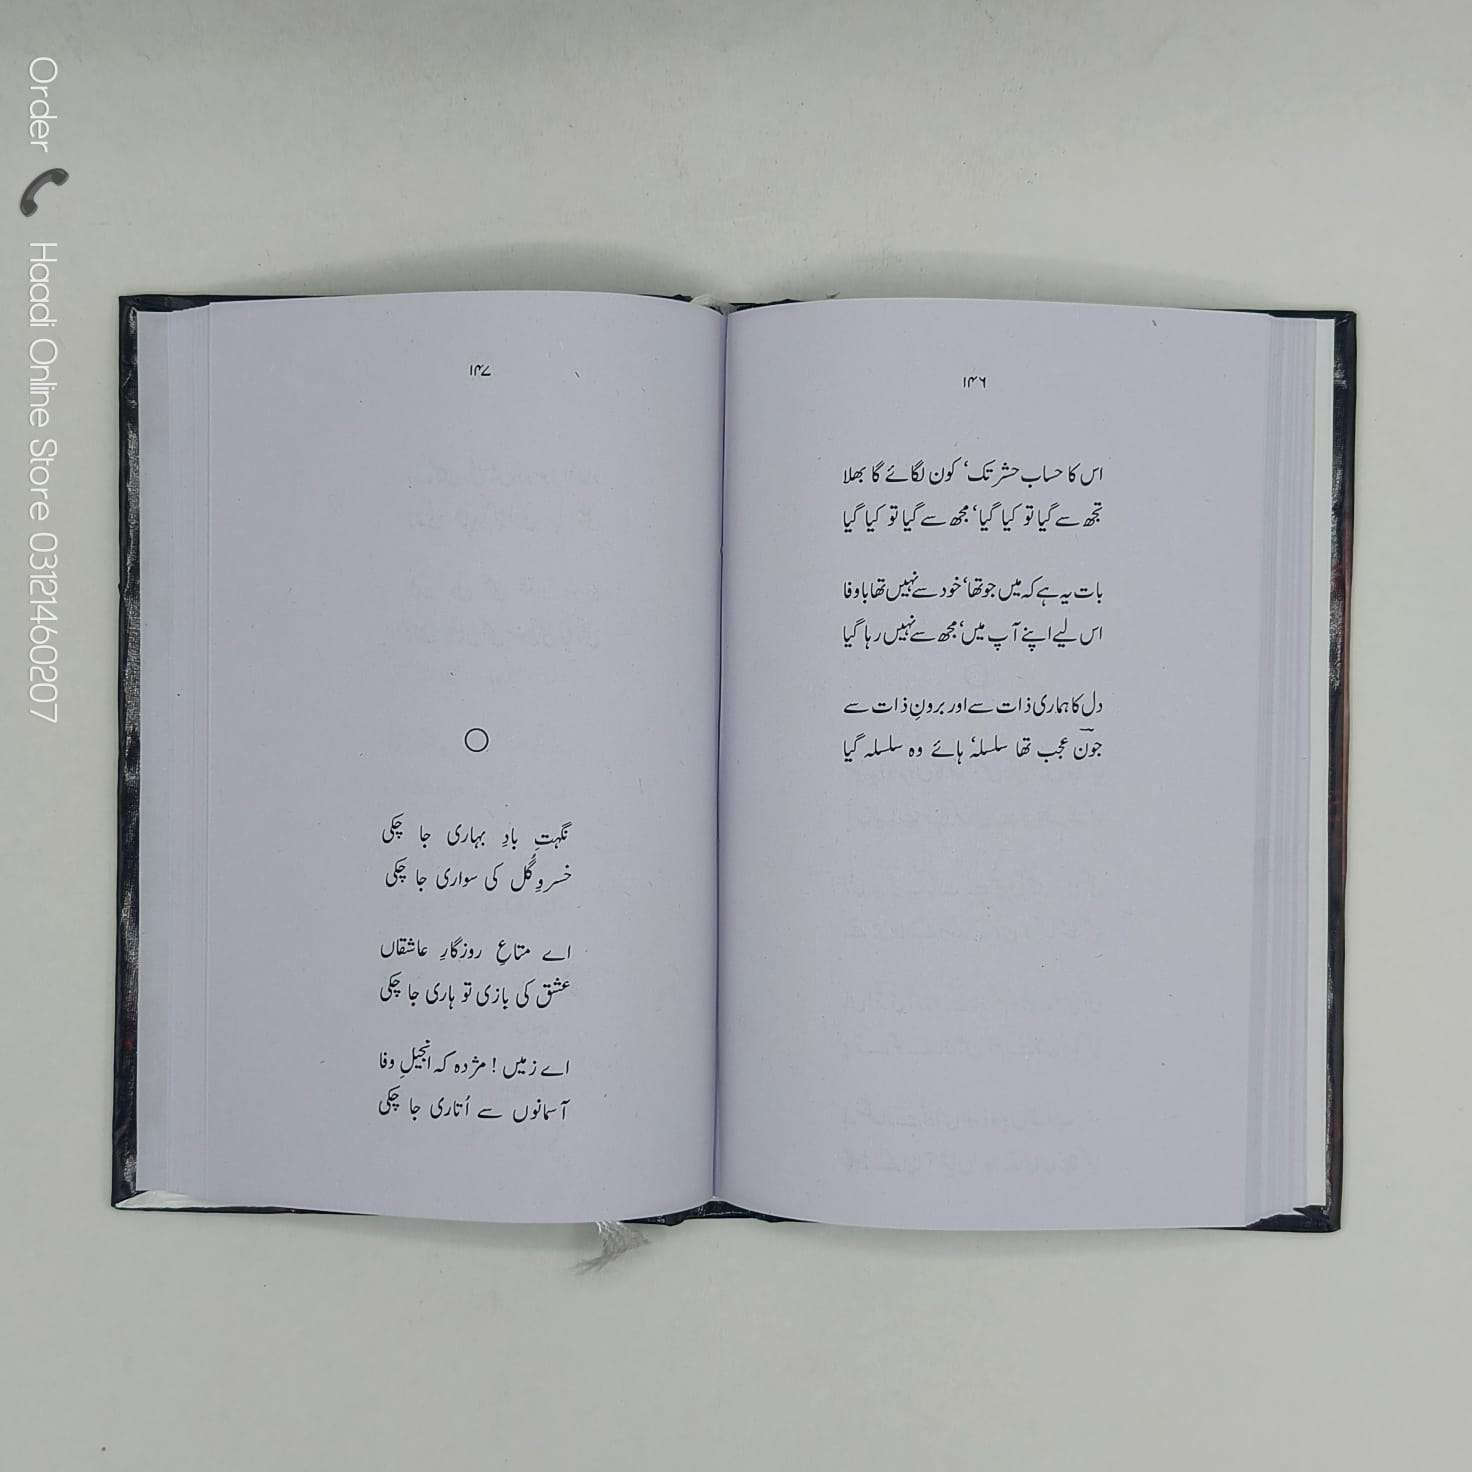 Order Haadi Online Store 03121460207
۱۴۶
اس کا حساب حشر تک، کون لگائے گا بھلا
تجھ سے گیا تو کیا گیا، مجھ سے گیا تو کیا گیا
بات یہ ہے کہ میں جو تھا، خود سے نہیں تھا باوفا
اس لیے اپنے آپ میں، مجھ سے نہیں رہا گیا
دل کا ہماری ذات سے اور برونِ ذات سے
جون عجب تھا سلسلہ، ہائے وہ سلسلہ گیا
۱۴۷
نگہتِ بادِ بہاری جا چکی
خسروِ گُل کی سواری جا چکی
اے متاعِ روزگارِ عاشقاں
عشق کی بازی تو ہاری جا چکی
اے زمیں! مژدہ کہ انجیلِ وفا
آسمانوں سے اُتاری جا چکی